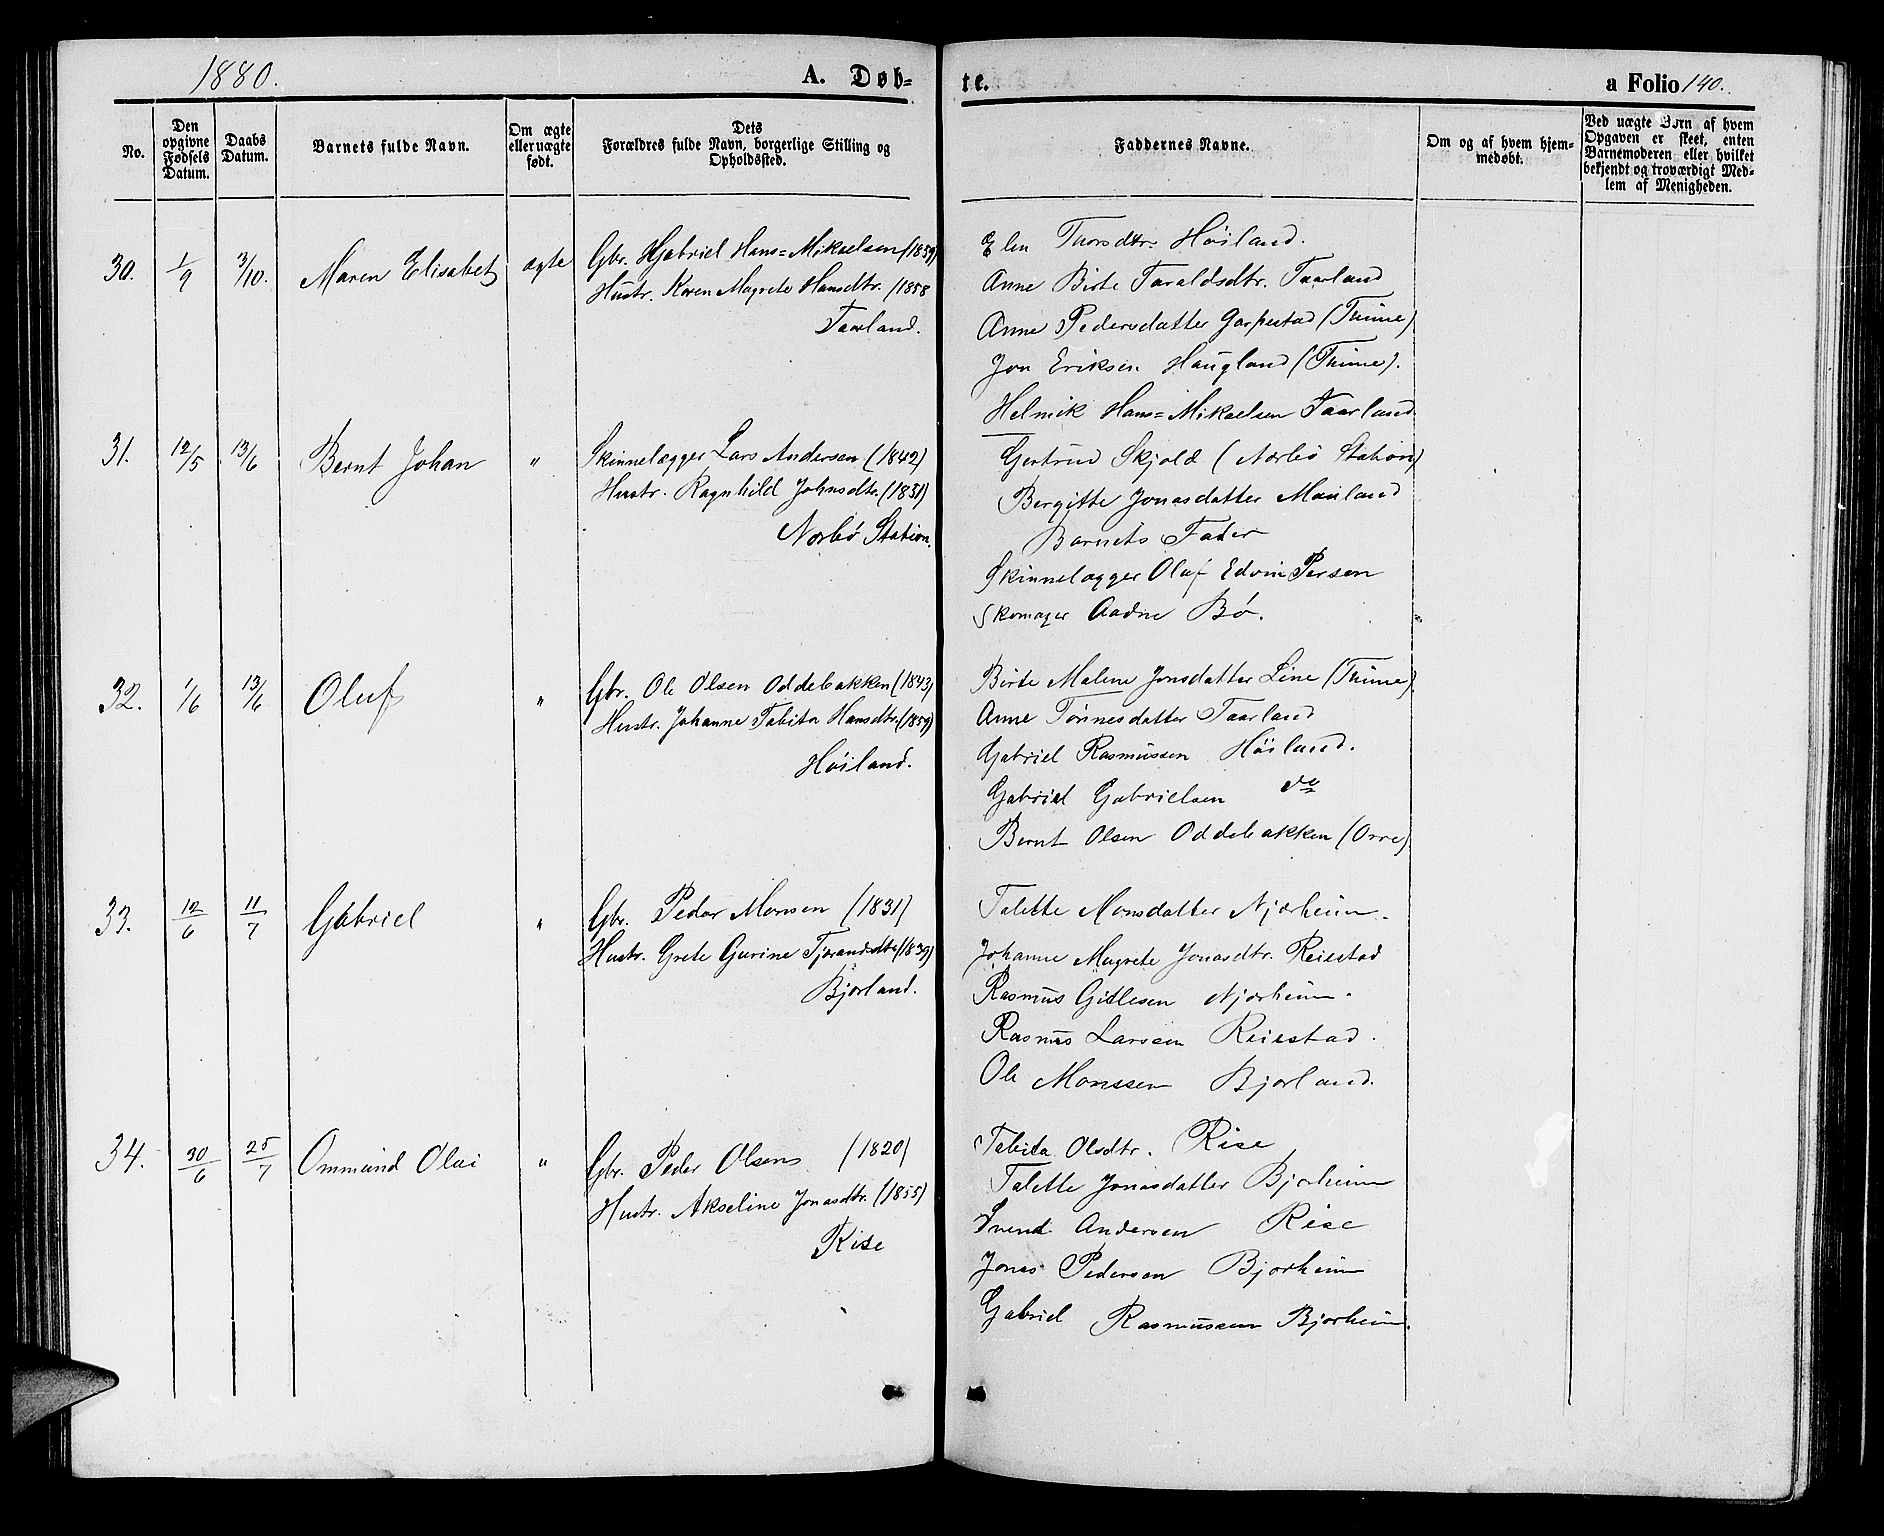 1880.
A. Døb-
te.
a Folio 140.
No.
Den opgivne Fødsels Datum.
Daabs Datum.
Barnets fulde Navn.
Om ægte eller uægte født.
Dets Forældres fulde Navn, borgerlige Stilling og Opholdssted.
Faddernes Navne.
Om og af hvem hjemmedøbt.
Ved uægte Børn af hvem Opgaven er skeet, enten Barnemoderen eller hvilket bekjendt og troværdigt Medlem af Menigheden.
30. 1/9 3/10. Maren Elisabet ægte
Gbr. Gabriel Hans=Mikaelsen (1859)
Hustr. Karen Magrete Hansdtr. (1858
Taarland.
Elen Thorsdtr. Höiland.
Anne Birte Taraldsdtr. Taarland
Anne Pedersdatter Garpestad (Thime)
Jon Eriksen Haugland (Thime).
Helmik Hans=Mikaelsen Taarland
31. 12/5 13/6 Bernt Johan "
Skinnelægger Lars Andersen (1842)
Hustr. Ragnhild Johnsdtr. (1851)
Nærbö Station.
Gertrud Skjold (Nærbö Station)
Bergitte Jonasdatter Mauland
Barnets Fader
Skinnelægger Oluf Edvin Persen
Skomager Aadne Bö.
32. 1/6 13/6 Oluf "
Gbr. Ole Olsen Oddebakken (1843)
Hustr. Johanne Tabita Hansdtr. (1859)
Höiland.
Birte Malene Jonsdatter Line (Thime)
Anne Tönnesdatter Taarland
Gabriel Rasmussen Höiland.
Gabriel Gabrielsen do
Bernt Olsen Oddebakken (Orre)
33. 12/6 11/7 Gabriel "
Gbr. Peder Monsen (1831)
Hustr. Grete Gurine Tjerandsdtr (1839)
Bjorland.
Talette Monsdatter Njærheim.
Johanne Magrete Jonasdtr. Reiestad
Rasmus Gitlesen Njærheim.
Rasmus Larsen Reiestad.
Ole Monssen Bjorland.
34. 30/6 25/7 Ommund Olai "
Gbr. Peder Olsen (1820)
Hustr. Akseline Jonasdtr. (1855)
Rise
Tabita Olsdtr. Rise
Talette Jonasdatter Bjorheim
Svend Andersen Rise
Jonas Pedersen Bjorheim
Gabriel Rasmussen Bjorheim.